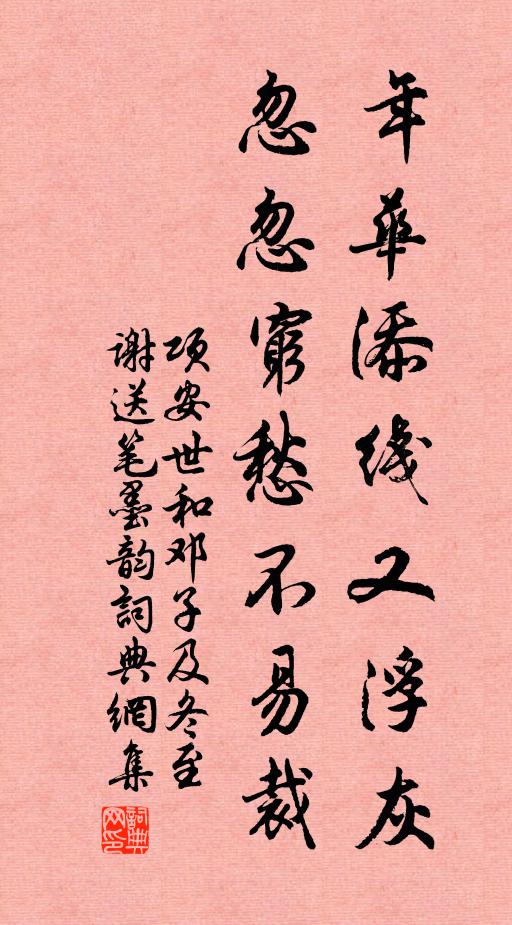 年华添线又浮灰
忽忽穷愁不易裁
项安世和邓子及冬至
谢送笔墨韵词典网集
詞典网印